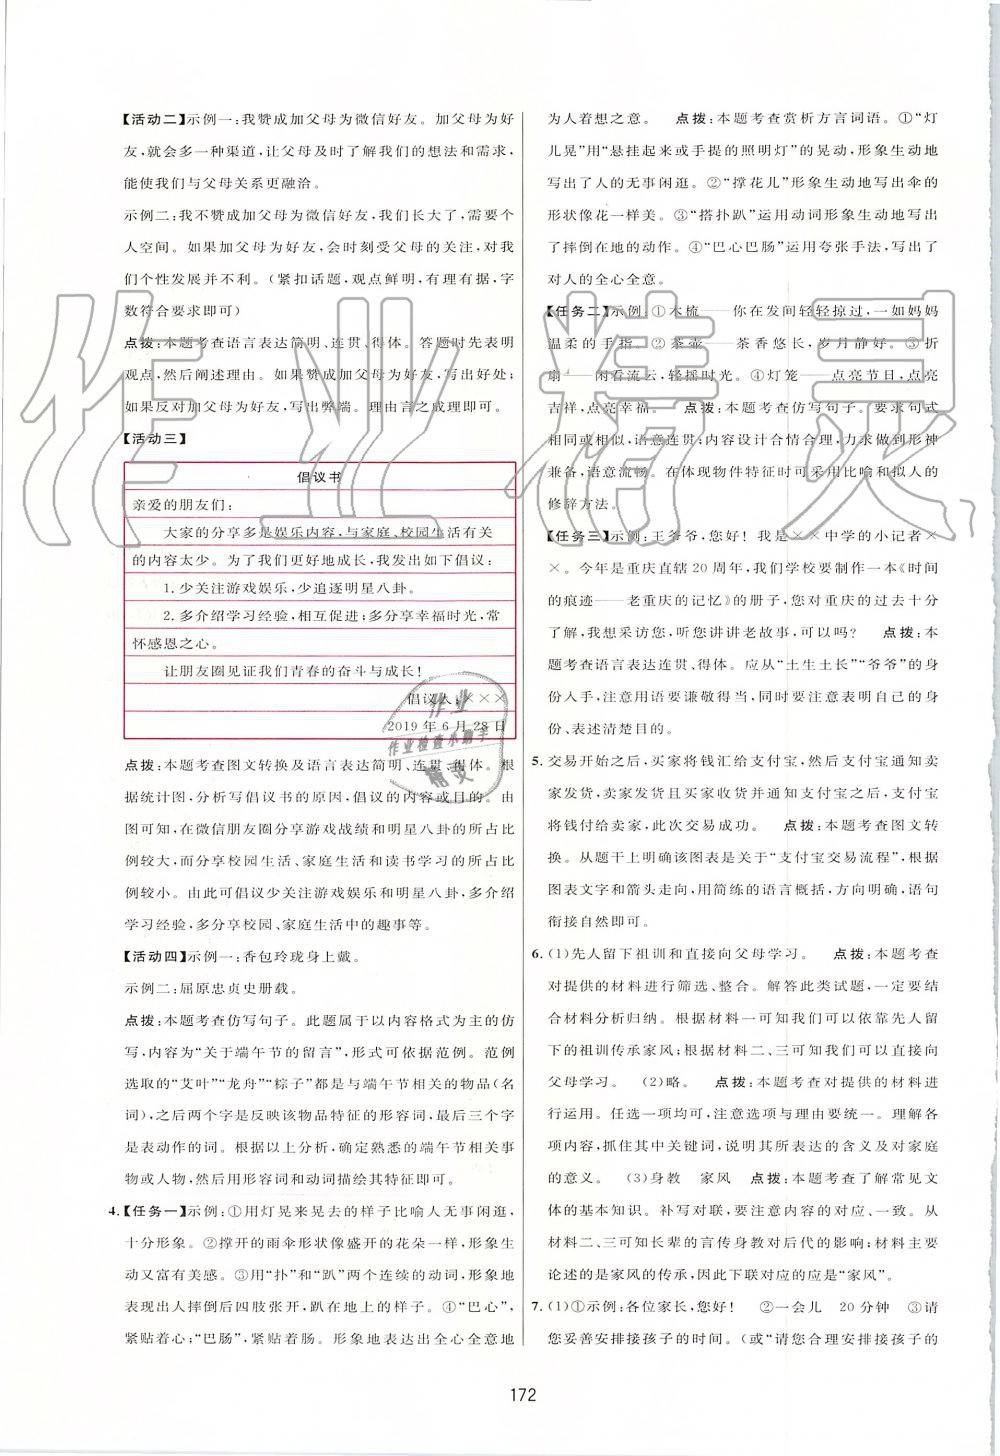 【活动二】示例一:我赞成加父母为微信好友。加父母为好
友,就会多一种渠道,让父母及时了解我们的想法和需求,
能使我们与父母关系更融洽。
示例二:我不赞成加父母为微信好友,我们长大了,需要个
人空间。如果加父母为好友,会时刻受父母的关注,对我
们个性发展并不利。(紧扣话题,观点鲜明,有理有据,字
数符合要求即可)
点拨:本题考查语言表达简明、连贯、得体。答题时先表明
观点,然后阐述理由。如果赞成加父母为好友,写出好处;
如果反对加父母为好友,写出弊端。理由言之成理即可。
【活动三】
倡议书
亲爱的朋友们:
大家的分享多是娱乐内容,与家庭、校园生活有关
的内容太少。为了我们更好地成长,我发出如下倡议:
1.少关注游戏娱乐,少追逐明星八卦。
2.多介绍学习经验,相互促进;多分享幸福时光,常
怀感恩之心。
让朋友圈见证我们青春的奋斗与成长!
倡议人:×××
2019年6月28日
点拨:本题考查图文转换及语言表达简明、连贯、得体。根
据统计图,分析写倡议书的原因,倡议的内容或目的。由
图可知,在微信朋友圈分享游戏战绩和明星八卦的所占比
例较大,而分享校园生活、家庭生活和读书学习的所占比
例较小。由此可倡议少关注游戏娱乐和明星八卦,多介绍
学习经验,多分享校园、家庭生活中的趣事等。
【活动四】示例一:香包玲珑身上戴。
示例二:屈原忠贞史册载。
点拨:本题考查仿写句子。此题属于以内容格式为主的仿
写,内容为“关于端午节的留言”,形式可依据范例。范例
选取的“艾叶”“龙舟”“粽子”都是与端午节相关的物品(名
词),之后两个字是反映该物品特征的形容词,最后三个字
是表动作的词。根据以上分析,确定熟悉的端午节相关事
物或人物,然后用形容词和动词描绘其特征即可。
4.【任务一】示例:①用灯晃来晃去的样子比喻人无事闲逛,
十分形象。②撑开的雨伞形状像盛开的花朵一样,形象生
动又富有美感。③用“扑”和“趴”两个连续的动词,形象地
表现出人摔倒后四肢张开,趴在地上的样子。④“巴心”,
紧贴着心;“巴肠”,紧贴着肠。形象地表达出全心全意地
为人着想之意。 点拨:本题考查赏析方言词语。①“灯
儿晃”用“悬挂起来或手提的照明灯”的晃动,形象生动地
写出了人的无事闲逛。②“撑花儿”形象生动地写出伞的
形状像花一样美。③“搭扑趴”运用动词形象生动地写出
了摔倒在地的动作。④“巴心巴肠”运用夸张手法,写出了
对人的全心全意。
【任务二】示例:①木梳——你在发间轻轻掠过,一如妈妈
温柔的手指。②茶壶——茶香悠长,岁月静好。③折
扇——闲看流云,轻摇时光。④灯笼——点亮节日,点亮
吉祥,点亮幸福。 点拨:本题考查仿写句子。要求句式
相同或相似,语意连贯;内容设计合情合理,力求做到形神
兼备,语意流畅。在体现物件特征时可采用比喻和拟人的
修辞方法。
【任务三】示例:王爷爷,您好! 我是××中学的小记者×
×。今年是重庆直辖20周年,我们学校要制作一本《时间
的痕迹——老重庆的记忆》的册子,您对重庆的过去十分
了解,我想采访您,听您讲讲老故事,可以吗? 点拨:本
题考查语言表达连贯、得体。应从“土生土长”“爷爷”的身
份入手,注意用语要谦敬得当,同时要注意表明自己的身
份、表述清楚目的。
5. 交易开始之后,买家将钱汇给支付宝,然后支付宝通知卖
家发货,卖家发货且买家收货并通知支付宝后,支付宝
将钱付给卖家,此次交易成功。 点拨:本题考查图文转
换。从题干上明确该图表是关于“支付宝交易流程”,根据
图表文字和箭头走向,用简练的语言概括,方向明确,语句
衔接自然即可。
6. (1)先人留下祖训和直接向父母学习。 点拨:本题考查
对提供的材料进行筛选、整合。解答此类试题,一定要结
合材料分析归纳。根据材料一可知我们可以依靠先人留
下的祖训传承家风;根据材料二、三可知我们可以直接向
父母学习。 (2)略。 点拨:本题考查对提供的材料进
行运用。任选一项均可,注意选项与理由要统一。理解各
项内容,抓住其中关键词,说明其所表达的含义及对家庭
的意义。 (3)身教 家风 点拨:本题考查了解常见文
体的基本知识。补写对联,要注意内容的对应、一致。从
材料二、三可知长辈的言传身教对后代的影响;材料主要
论述的是家风的传承,因此下联对应的应是“家风”。
7. (1)①示例:各位家长,您好! ②一会儿 20分钟 ③请
您妥善安排接孩子的时间。(或“请您合理安排接孩子的
172
作业精灵
作业
作业检查小助手
精灵